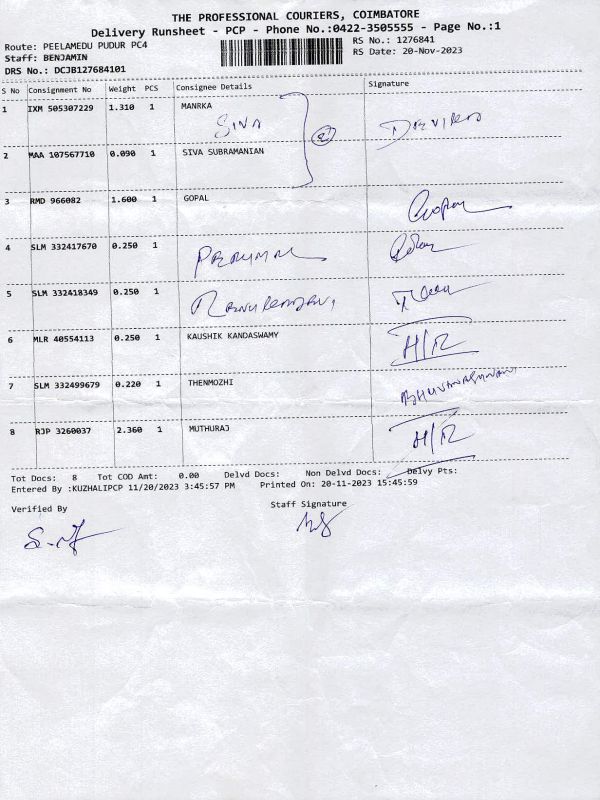 THE PROFESSIONAL COURIERS, COIMBATORE
Delivery Runsheet - PCP - Phone No.:0422-3505555 - Page No.:1
Route: PEELAMEDU PUDUR PC4
RS No.: 1276841
Staff: BENJAMIN
RS Date: 20-Nov-2023
DRS No.: DCJB127684101
S No Consignment No Weight PCS Consignee Details Signature
1 IXM 505307229 1.310 1 MANRKA
SIVA
2 MAA 107567710 0.090 1 SIVA SUBRAMANIAN
3 RMD 966082 1.600 1 GOPAL
Gopal
4 SLM 332417670 0.250 1
5 SLM 332418349 0.250 1
6 MLR 40554113 0.250 1 KAUSHIK KANDASWAMY
H/R
7 SLM 332499679 0.220 1 THENMOZHI
8 RJP 3260037 2.360 1 MUTHURAJ
H/R
Tot Docs: 8 Tot COD Amt: 0.00 Delvd Docs: Non Delvd Docs: Delvy Pts:
Entered By :KUZHALIPCP 11/20/2023 3:45:57 PM Printed On: 20-11-2023 15:45:59
Verified By Staff Signature